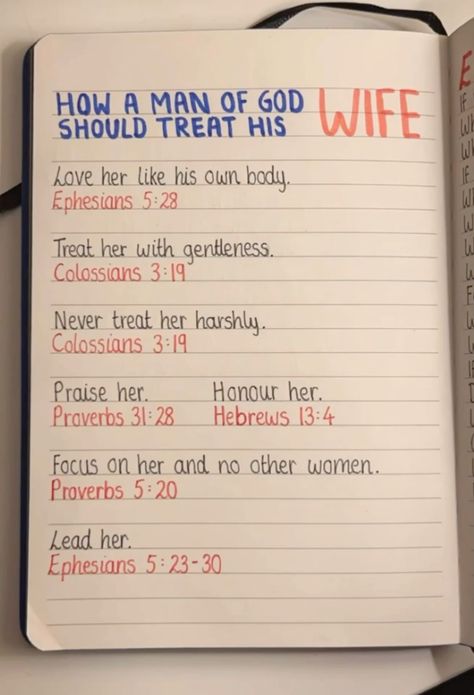 HOW A MAN OF GOD
SHOULD TREAT HIS WIFE
Love her like his own body.
Ephesians 5:28
Treat her with gentleness.
Colossians 3:19
Never treat her harshly.
Colossians 3:19
Praise her. Honour her.
Proverbs 31:28 Hebrews 13:4
Focus on her and no other women.
Proverbs 5:20
Lead her.
Ephesians 5:23-30